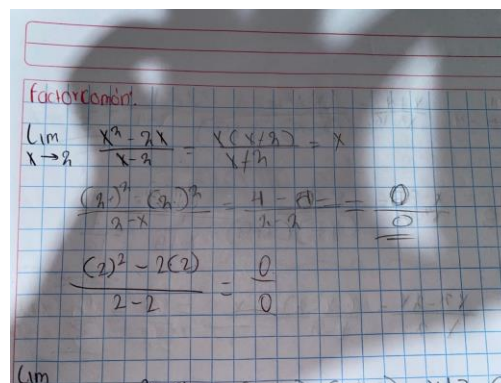 Factor común.
Lim x→2 x² - 2x / x-2 = x(x-2) / x-2 = x
(2)² - (2)² / 2-x = 4 - / 2-2 = 0/0
(2)² - 2(2) / 2-2 = 0/0
Lim